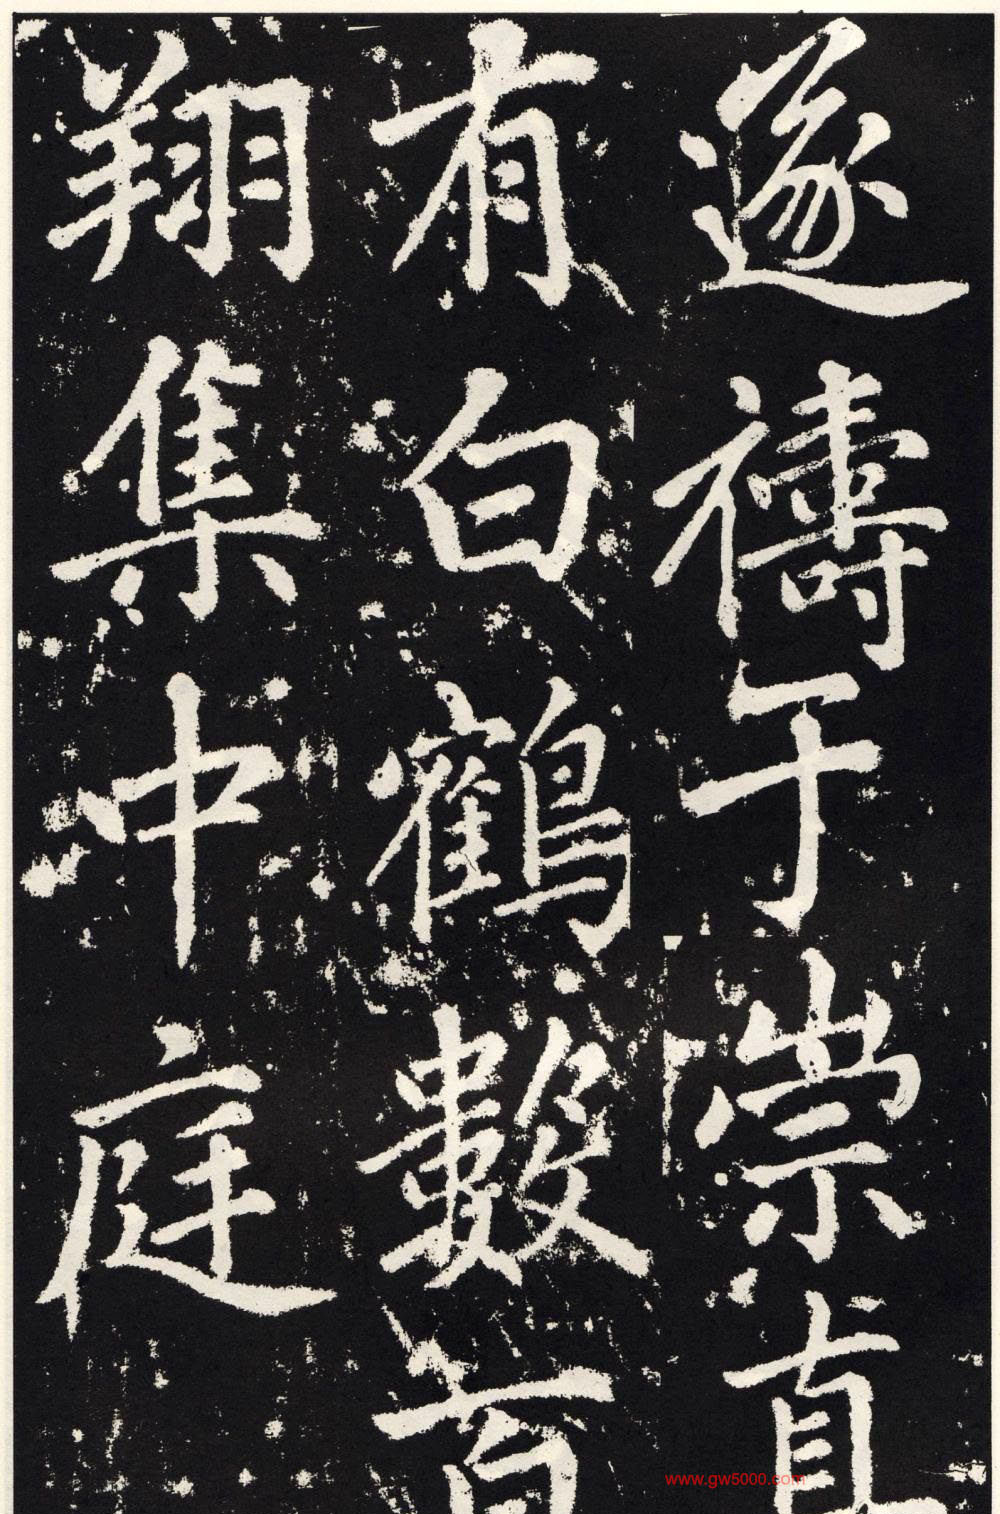 遂禱于崇真
有白鶴數百
翔集中庭
www.gw5000.com